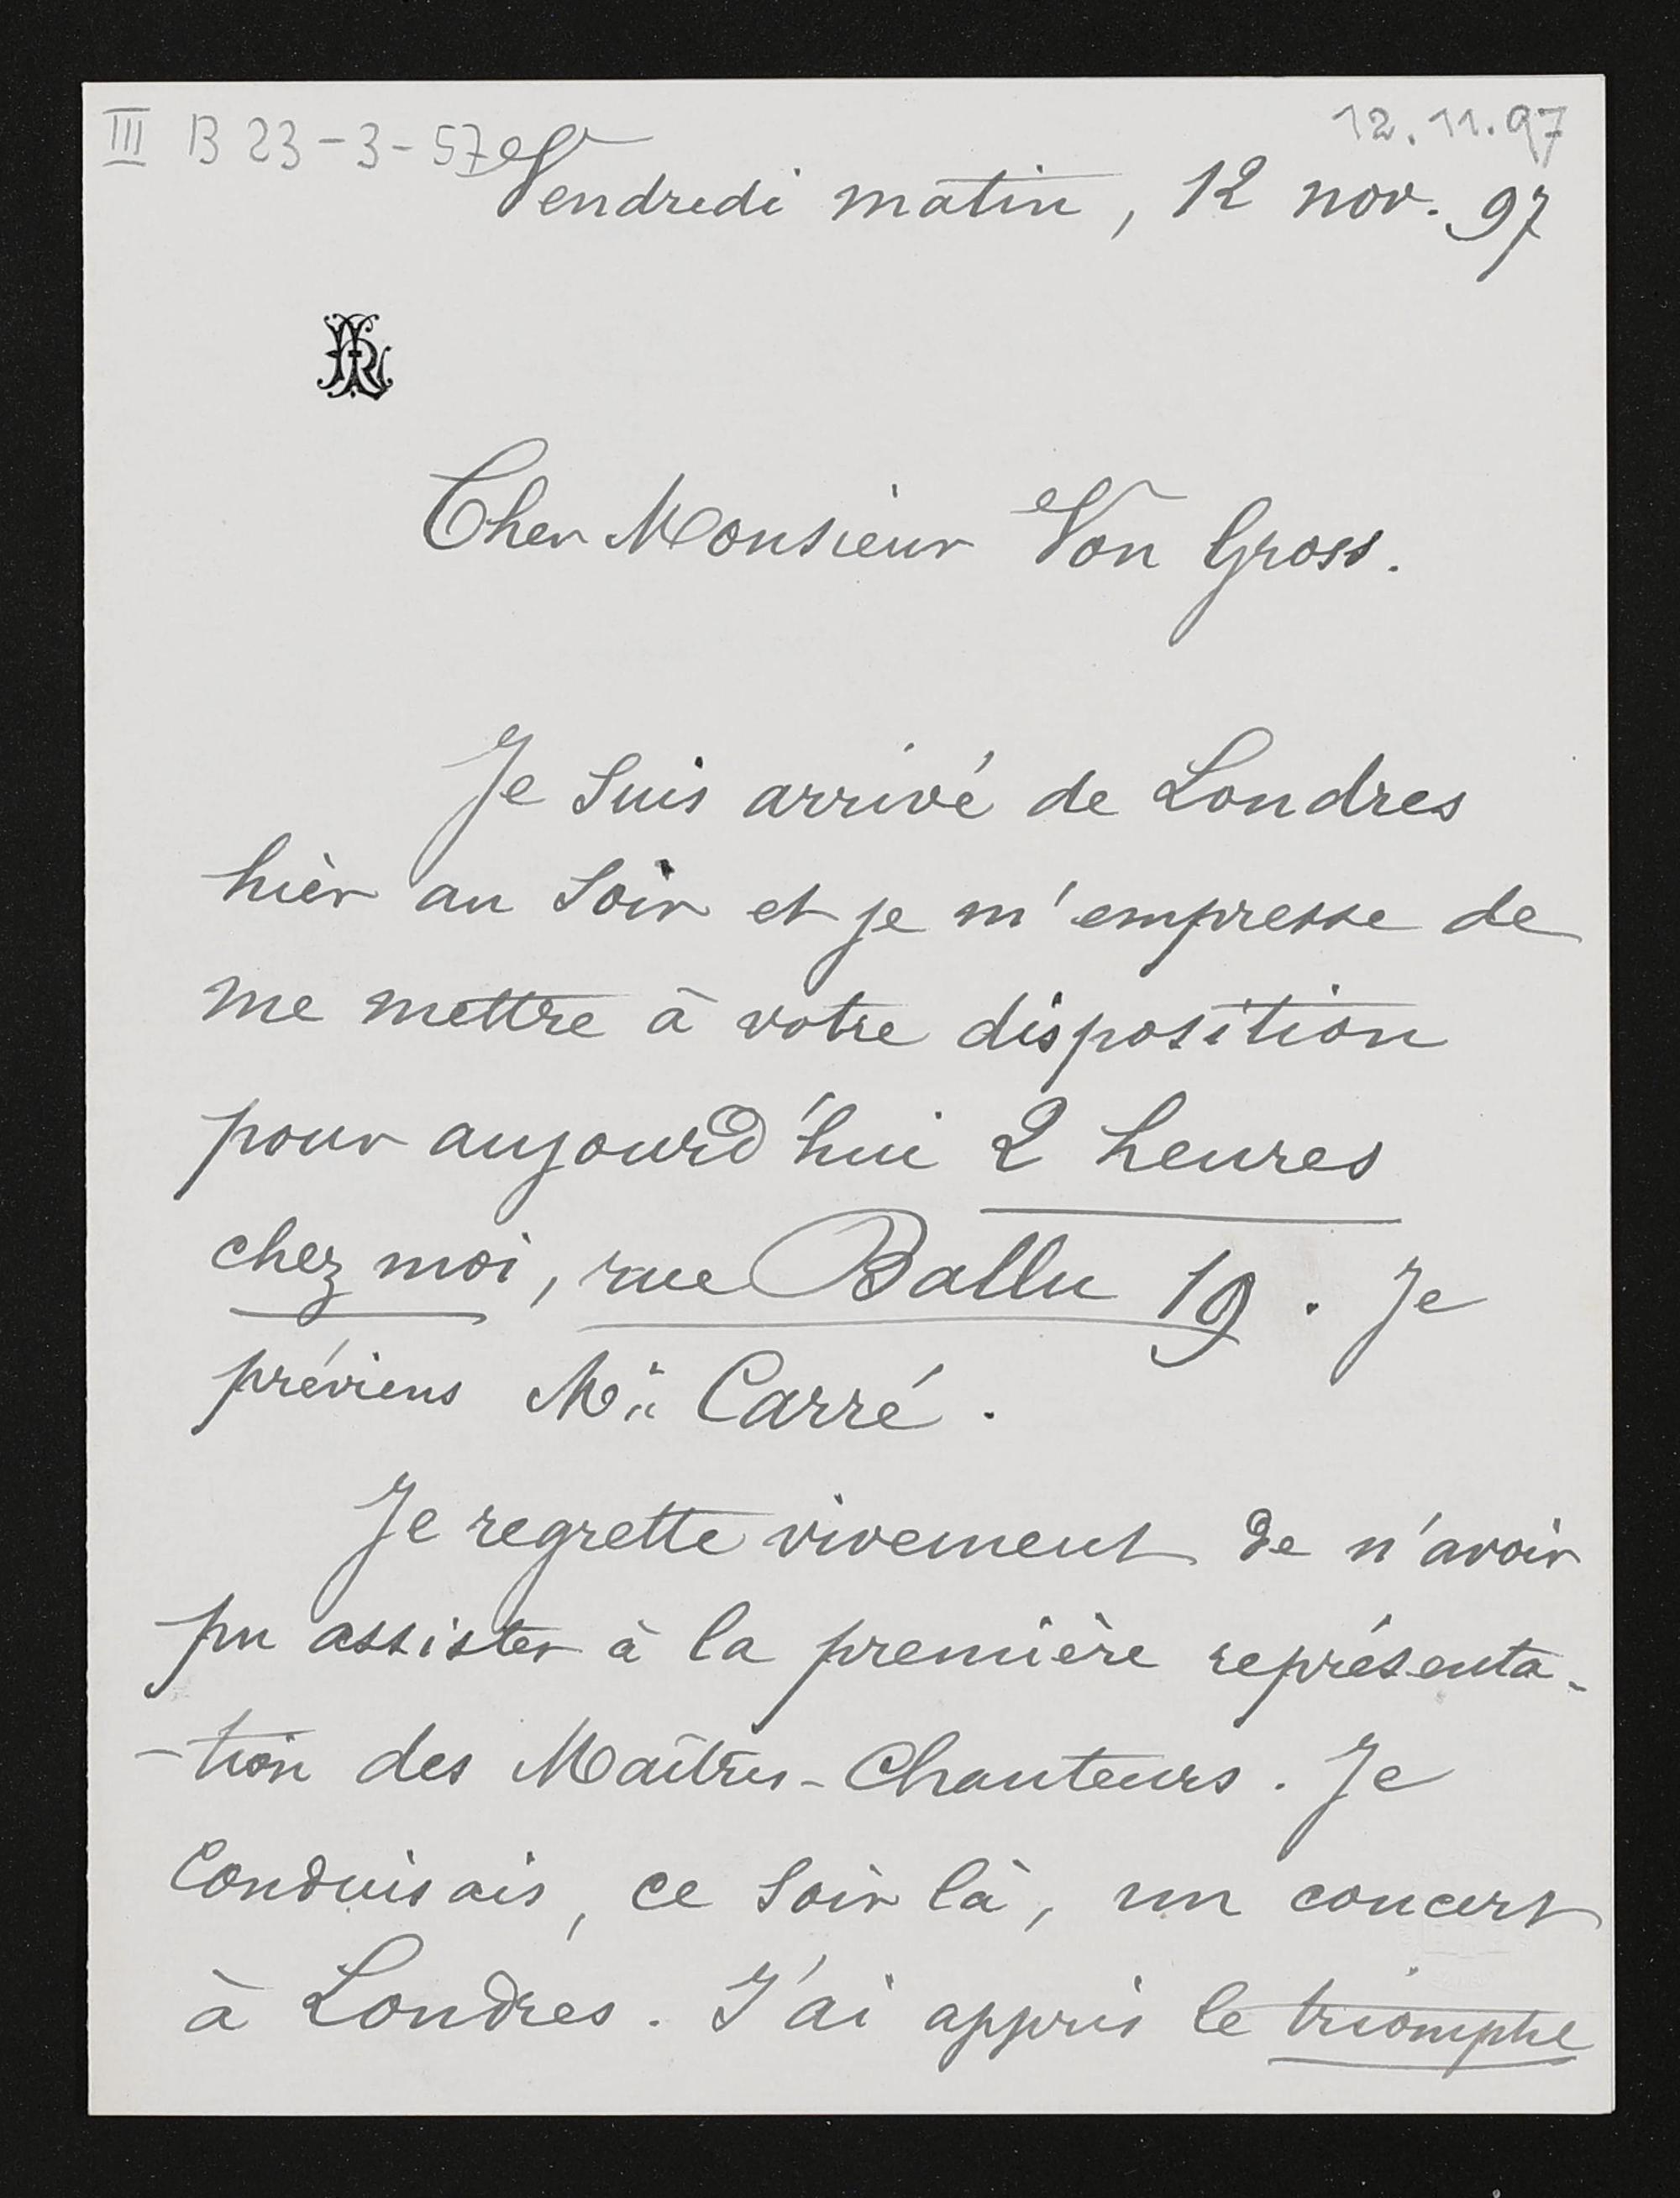 III B 23-3-57
12.11.97
Vendredi matin, 12 nov. 97
Cher Monsieur Von Gross.
Je suis arrivé de Londres
hier au soir et je m'empresse de
me mettre à votre disposition
pour aujourd'hui 2 heures
chez moi, rue Ballu 19. Je
préviens Mr. Carré.
Je regrette vivement de n'avoir
pu assister à la première représenta-
-tion des Maîtres-Chanteurs. Je
conduisais, ce soir là, un concert
à Londres. J'ai appris le triomphe